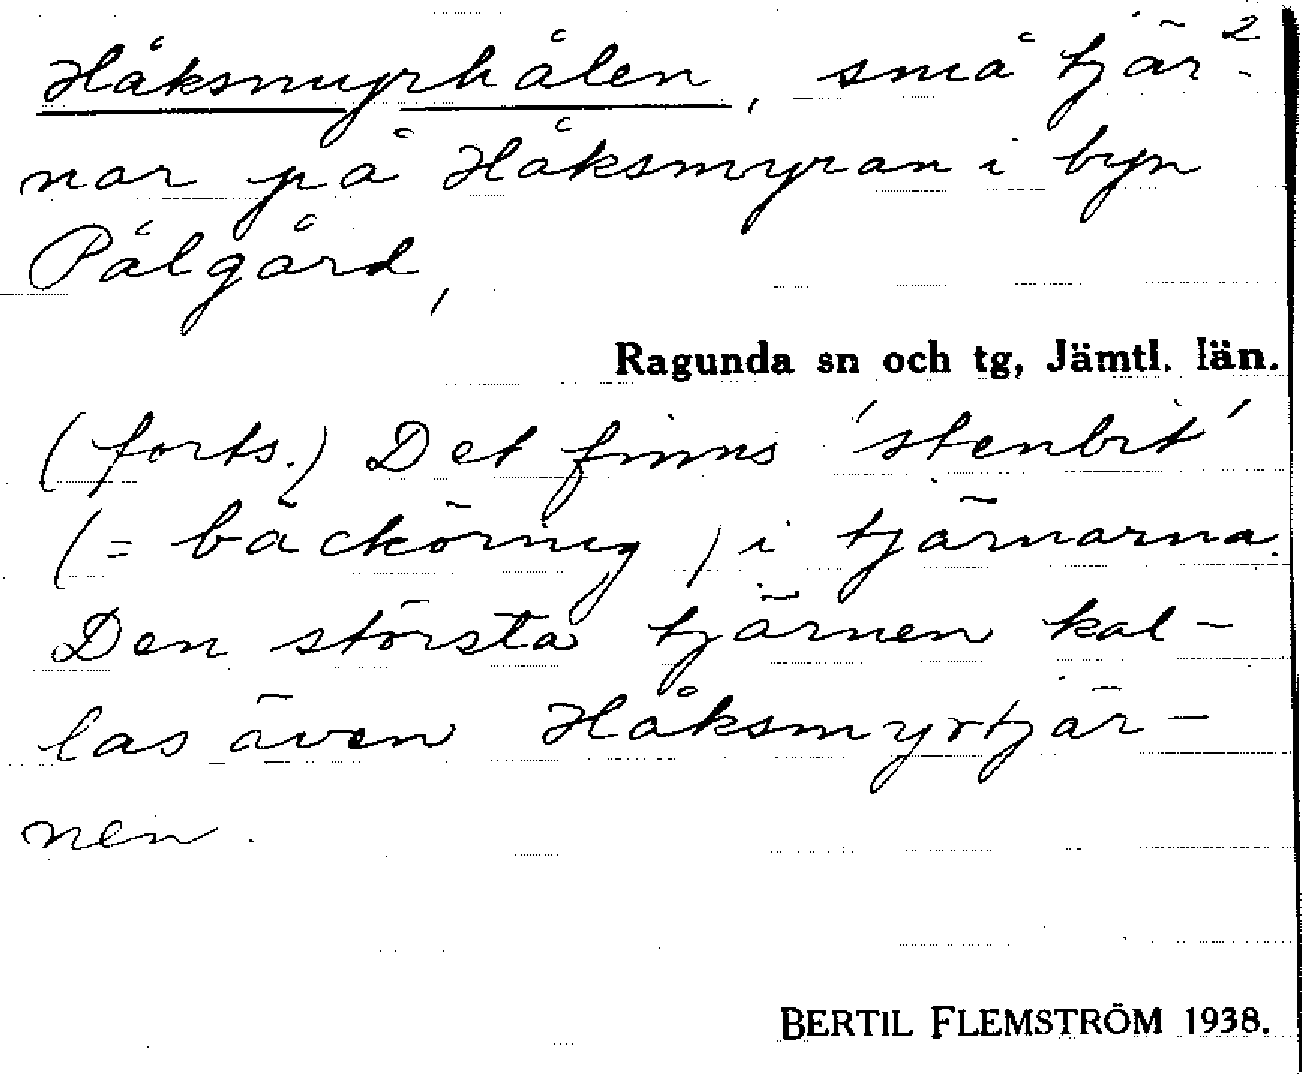 2
Håksmyrhålen, små tjär-
nar på Håksmyran i byn
Pålgård,
Ragunda sn och tg, Jämtl. län.
(forts.) Det finns 'stenbit'
(= bäckörnig) i tjärnarna.
Den största tjärnen kal-
las även Håksmyrtjär-
nen.
BERTIL FLEMSTRÖM 1938.